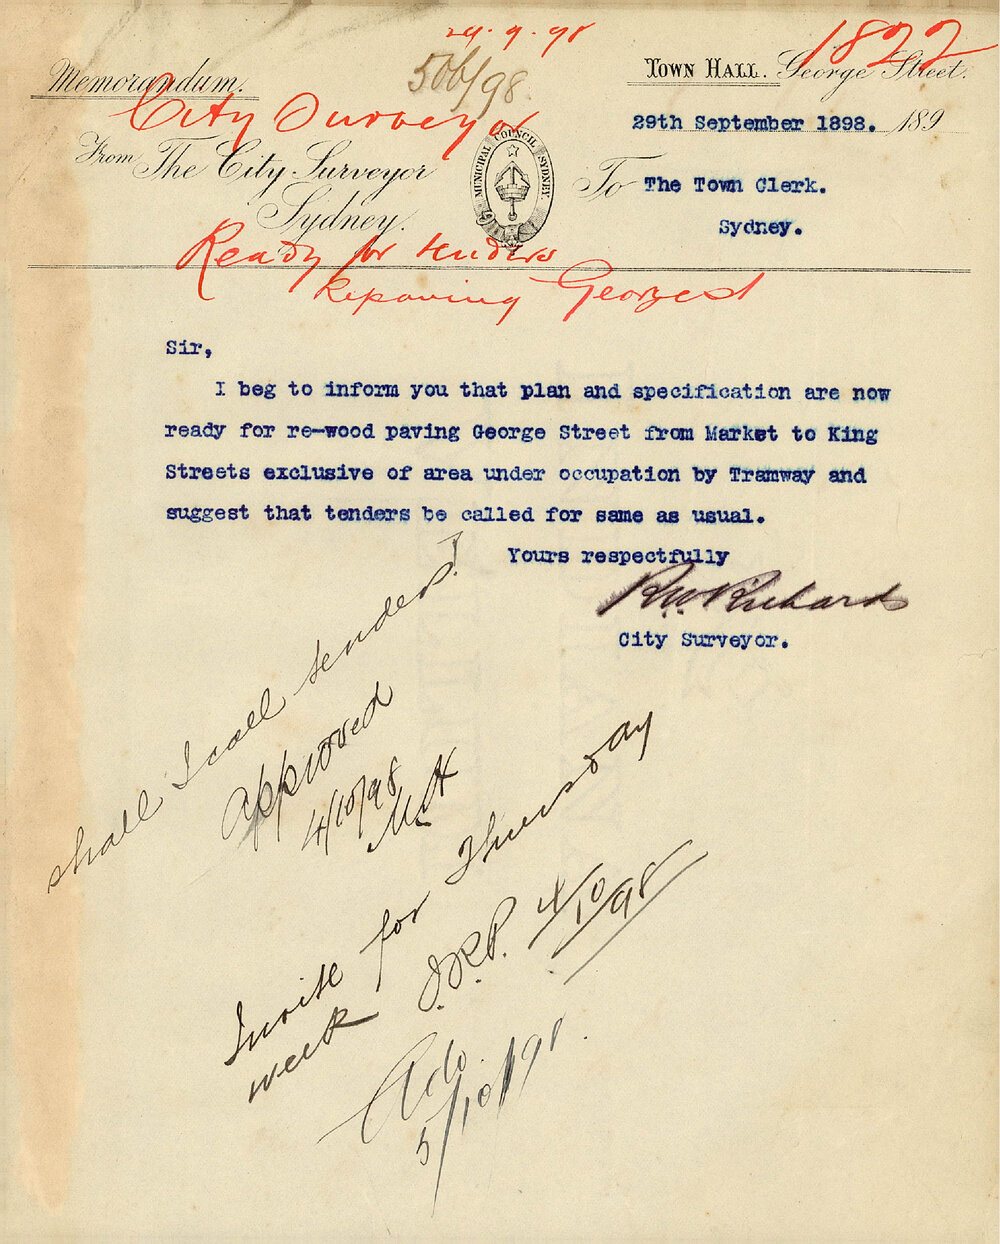 29.9.98
1822
506/98
Memorandum.
Town Hall. George Street.
City Surveyor
29th September 1898. 189
From The City Surveyor
Sydney.
MUNICIPAL COUNCIL SYDNEY.
To The Town Clerk.
Sydney.
Ready for tenders
Repaving George st
Sir,
I beg to inform you that plan and specification are now
ready for re-wood paving George Street from Market to King
Streets exclusive of area under occupation by Tramway and
suggest that tenders be called for same as usual.
Yours respectfully
R W Richards
City Surveyor.
Shall I call tenders?
Approved
4/10/98
M.H
Invite for Thursday
week J.R.P. 4/10/98
Ado.
5/10/98.